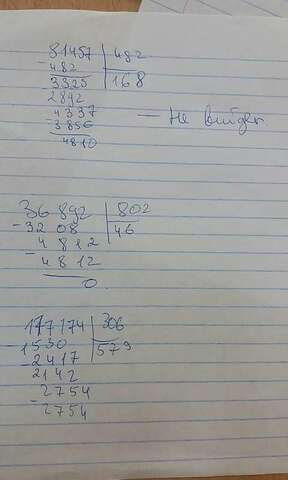 81457 | 482
- 482 | 168
3325
2892
- 4337 — Не выйдет
3856
4810
36892 | 802
- 3208 | 46
4812
- 4812
0
177174 | 306
- 1530 | 579
- 2417
2142
- 2754
2754